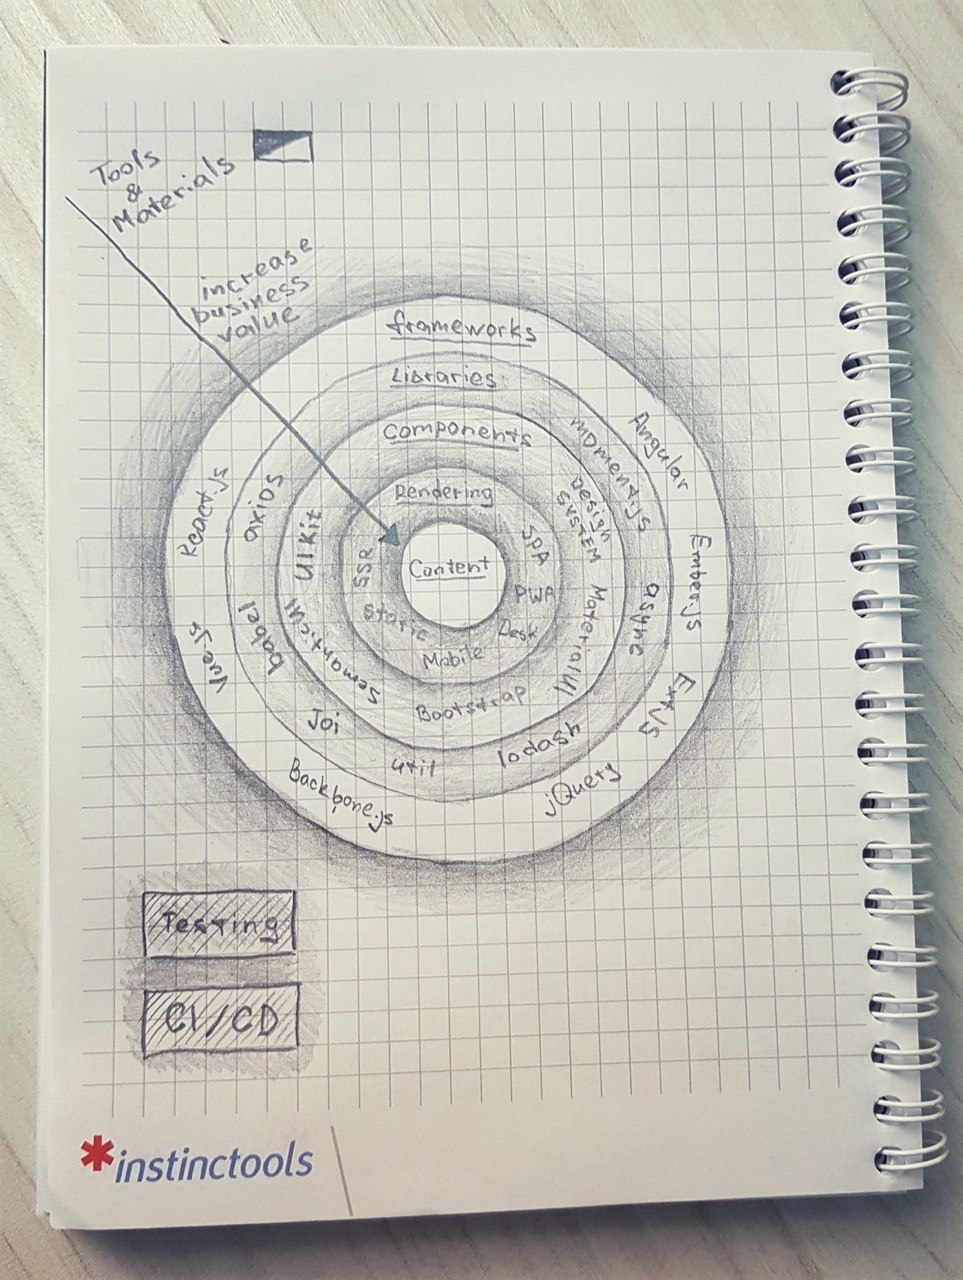 Tools
&
Materials
increase
business
value
frameworks
Libraries
Components
Rendering
Content
SSR
Static
Mobile
Desk
PWA
SPA
UI Kit
SemanticUI
Bootstrap
MaterialUI
Design
SYSTEM
axios
babel
Joi
util
lodash
async
moment.js
React.js
Vue.js
Backbone.js
jQuery
ExtJS
Ember.js
Angular
Testing
CI/CD
*instinctools